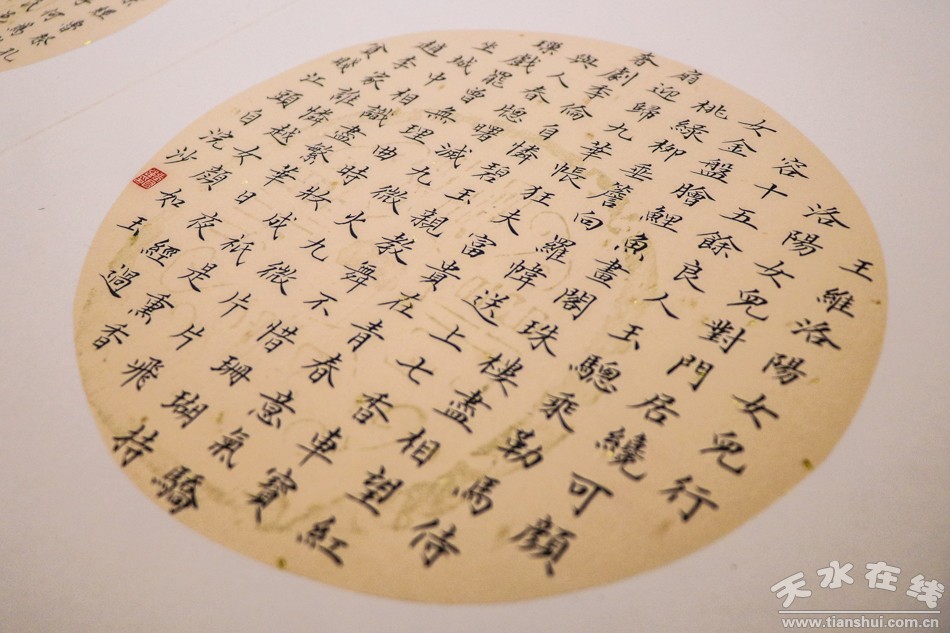 王維洛陽女兒行
洛陽女兒對門居纔可顏
容十五餘良人玉驄乘勒馬侍
女金盤膾鯉魚畫閣珠樓盡相望紅
桃綠柳垂簷向羅幃送上七香車寶
扇迎歸九華帳狂夫富貴在青春意氣驕
奢劇季倫自憐碧玉親教舞不惜珊瑚持
與人春牕曙滅九微火九微片片飛
璅戲罷曾無理曲時妝成祇是熏香
坐城中相識盡繁華日夜經過
趙李家誰憐越女顏如玉
貧賤江頭自浣沙
天水在线
www.tianshui.com.cn